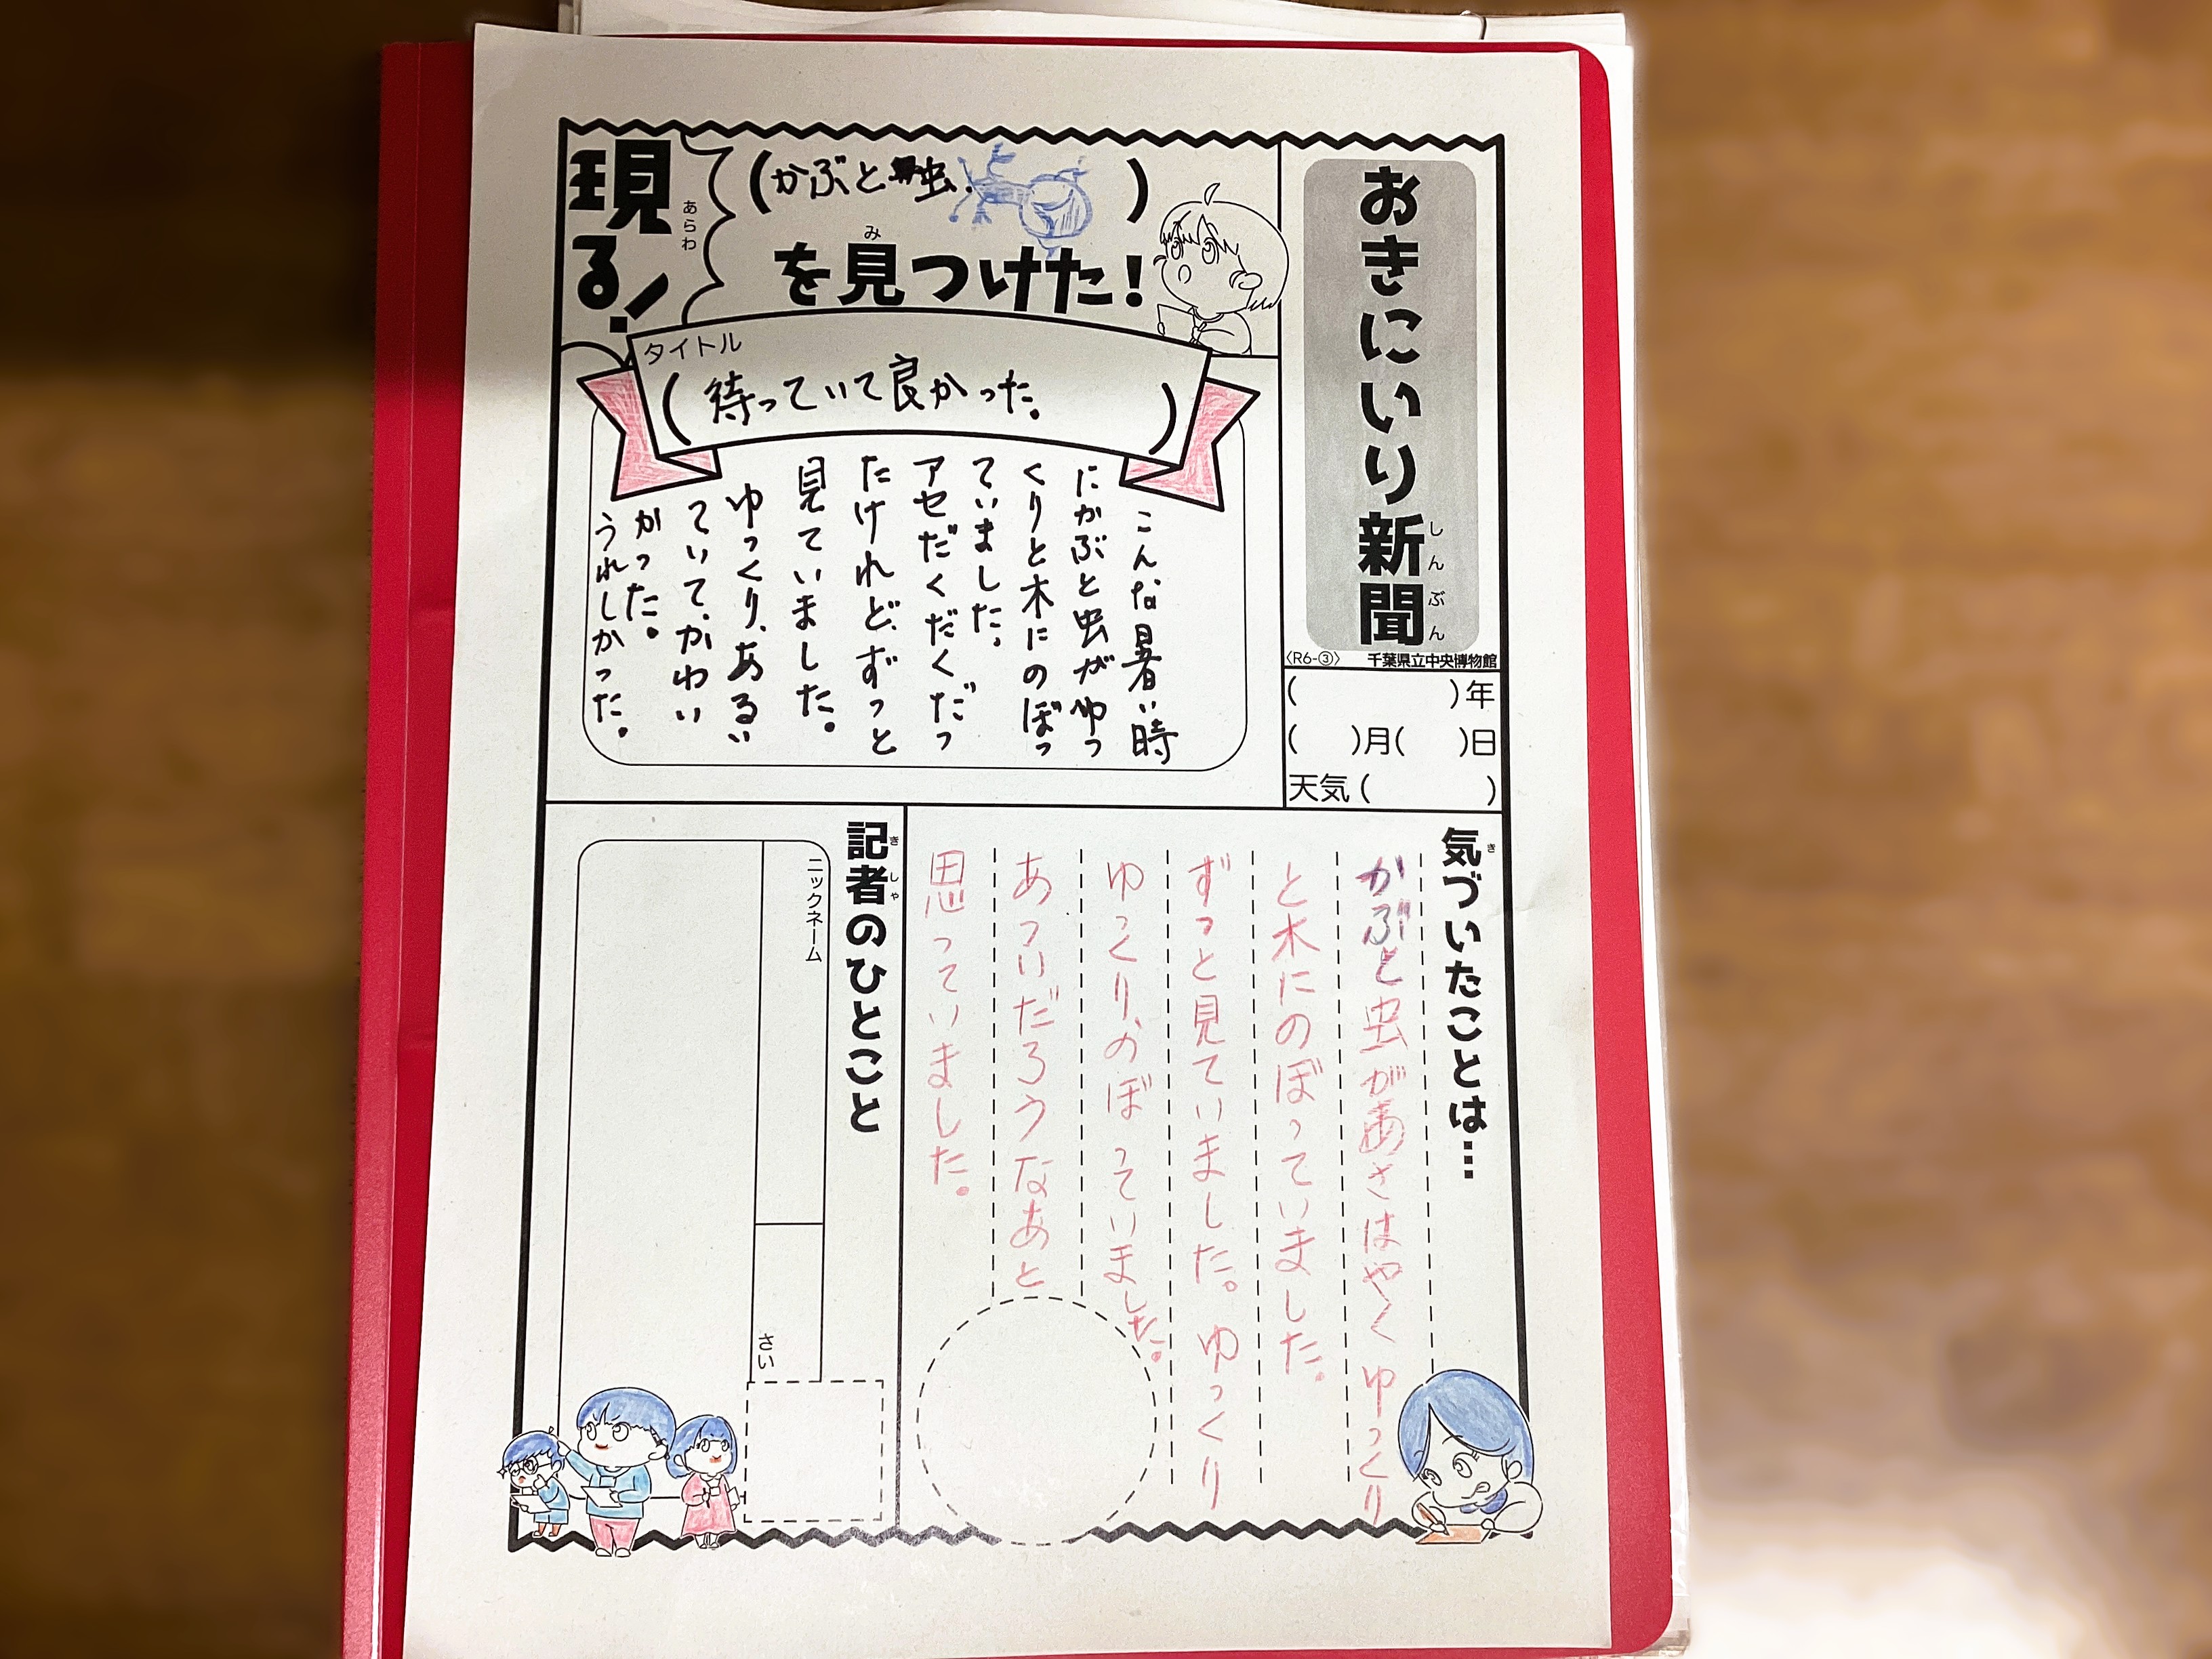 おきにいり新聞
しんぶん
〈R6-③〉 千葉県立中央博物館
( )年
( )月( )日
天気( )
現る!
あらわ
(かぶと虫 )
を見つけた!
み
タイトル
(待っていて良かった。)
こんな暑い時
にかぶと虫がゆっ
くりと木にのぼっ
ていました。
アセだくだくだっ
たけれど、ずっと
見ていました。
ゆっくり、あるい
ていて、かわい
かった。
うれしかった。
気づいたことは…
き
かぶと虫があさはやくゆっくり
と木にのぼっていました。
ずっと見ていました。ゆっくり
ゆっくり、のぼっていました。
あついだろうなあと
思っていました。
記者のひとこと
きしゃ
ニックネーム
さい